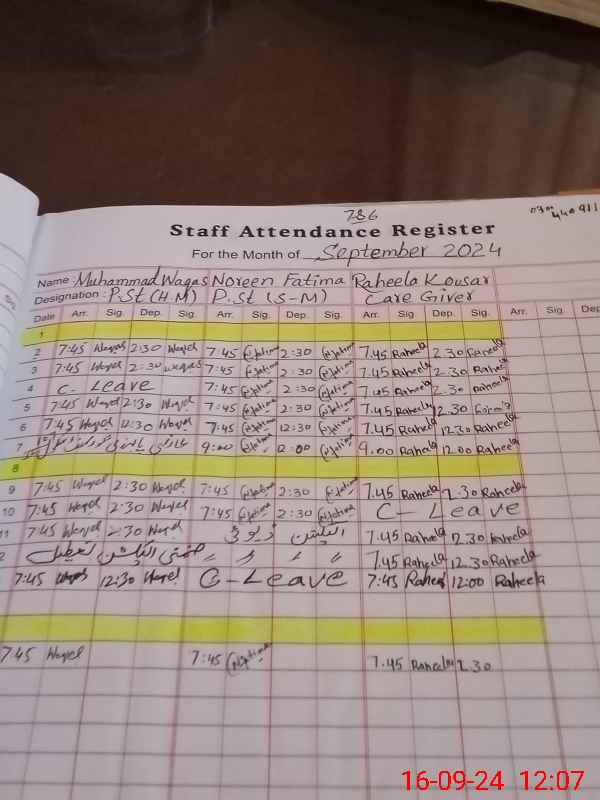 786
Staff Attendance Register
For the Month of September 2024
Name: Muhammad Waqas Noreen Fatima Raheela Kousar
Designation: P.St (H.M) P.St (S-M) Care Giver
Date Arr. Sig. Dep. Sig. Arr. Sig. Dep. Sig. Arr. Sig. Dep. Sig. Arr. Sig. Dep
1
2 7:45 Waqas 2:30 Waqas 7:45 2:30 7.45 Raheela 2.30 Raheela
3 7:45 Waqas 2:30 Waqas 7:45 2:30 7.45 Raheela 2.30 Raheela
4 C. Leave 7:45 2:30 7.45 Raheela 2.30 Raheela
5 7:45 Waqas 2:30 Waqas 7:45 2:30 7.45 Raheela 2.30
6 7:45 Waqas 12:30 Waqas 7:45 12:30 7.45 Raheela 12.30 Raheela
7 9:00 12:00 9.00 Raheela 12.00 Raheela
8
9 7:45 Waqas 2:30 Waqas 7:45 2:30 7.45 Raheela 2.30 Raheela
10 7:45 Waqas 2:30 Waqas 7:45 2:30 C- Leave
11 7:45 Waqas 2:30 الیکشن ڈیوٹی 7.45 Raheela 2.30 Raheela
2 ضمنی الیکشن تعطیل 〃 〃 〃 〃 7.45 Raheela 12.30 Raheela
7:45 Waqas 12:30 Waqas C-Leave 7:45 Raheela 12:00 Raheela
7:45 Waqas 7:45 7.45 Raheela 2.30
16-09-24 12:07